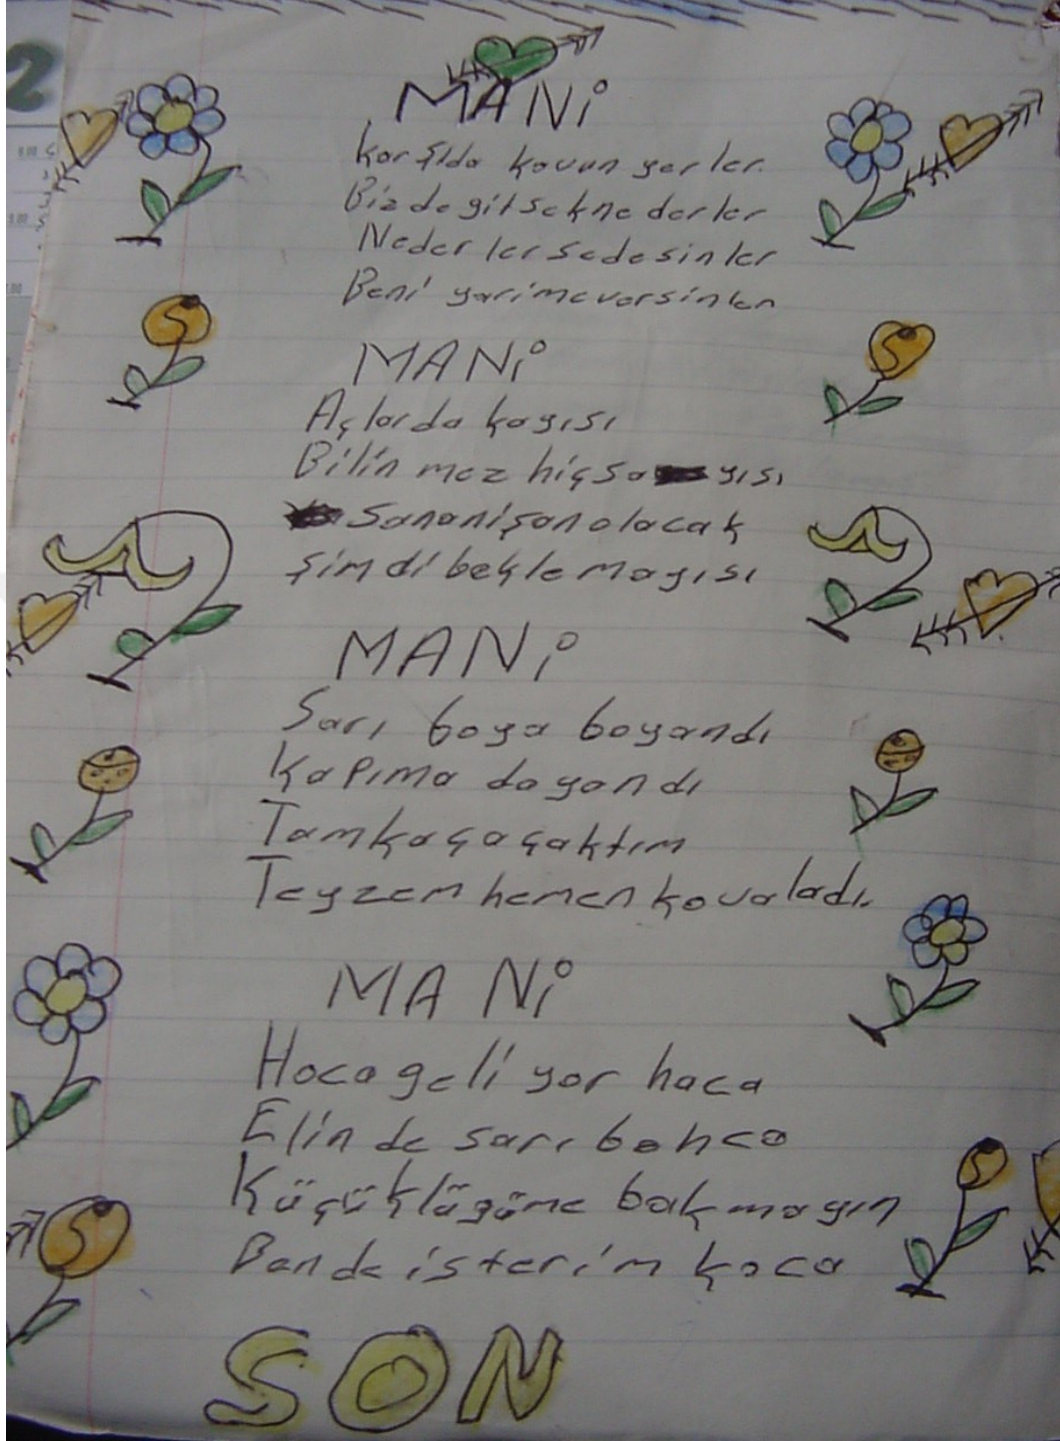 MANİ
Karşıda kavun yerler.
Bizde gitsekne derler
Neder lersedesinler
Beni yarimeversinler
MANİ
Açlarda kayısı
Bilin mez hiçsayısı
Sananişanolacak
Şimdi bekle mayısı
MANİ
Sarı boya boyandı
Kapıma dayandı
Tamkaçaçaktım
Teyzem hemen kovaladı.
MANİ
Hoca geli yor haca
Elin de sarı bohca
Küçüklüğüme bakmayın
Bende isterim koca
SON
2